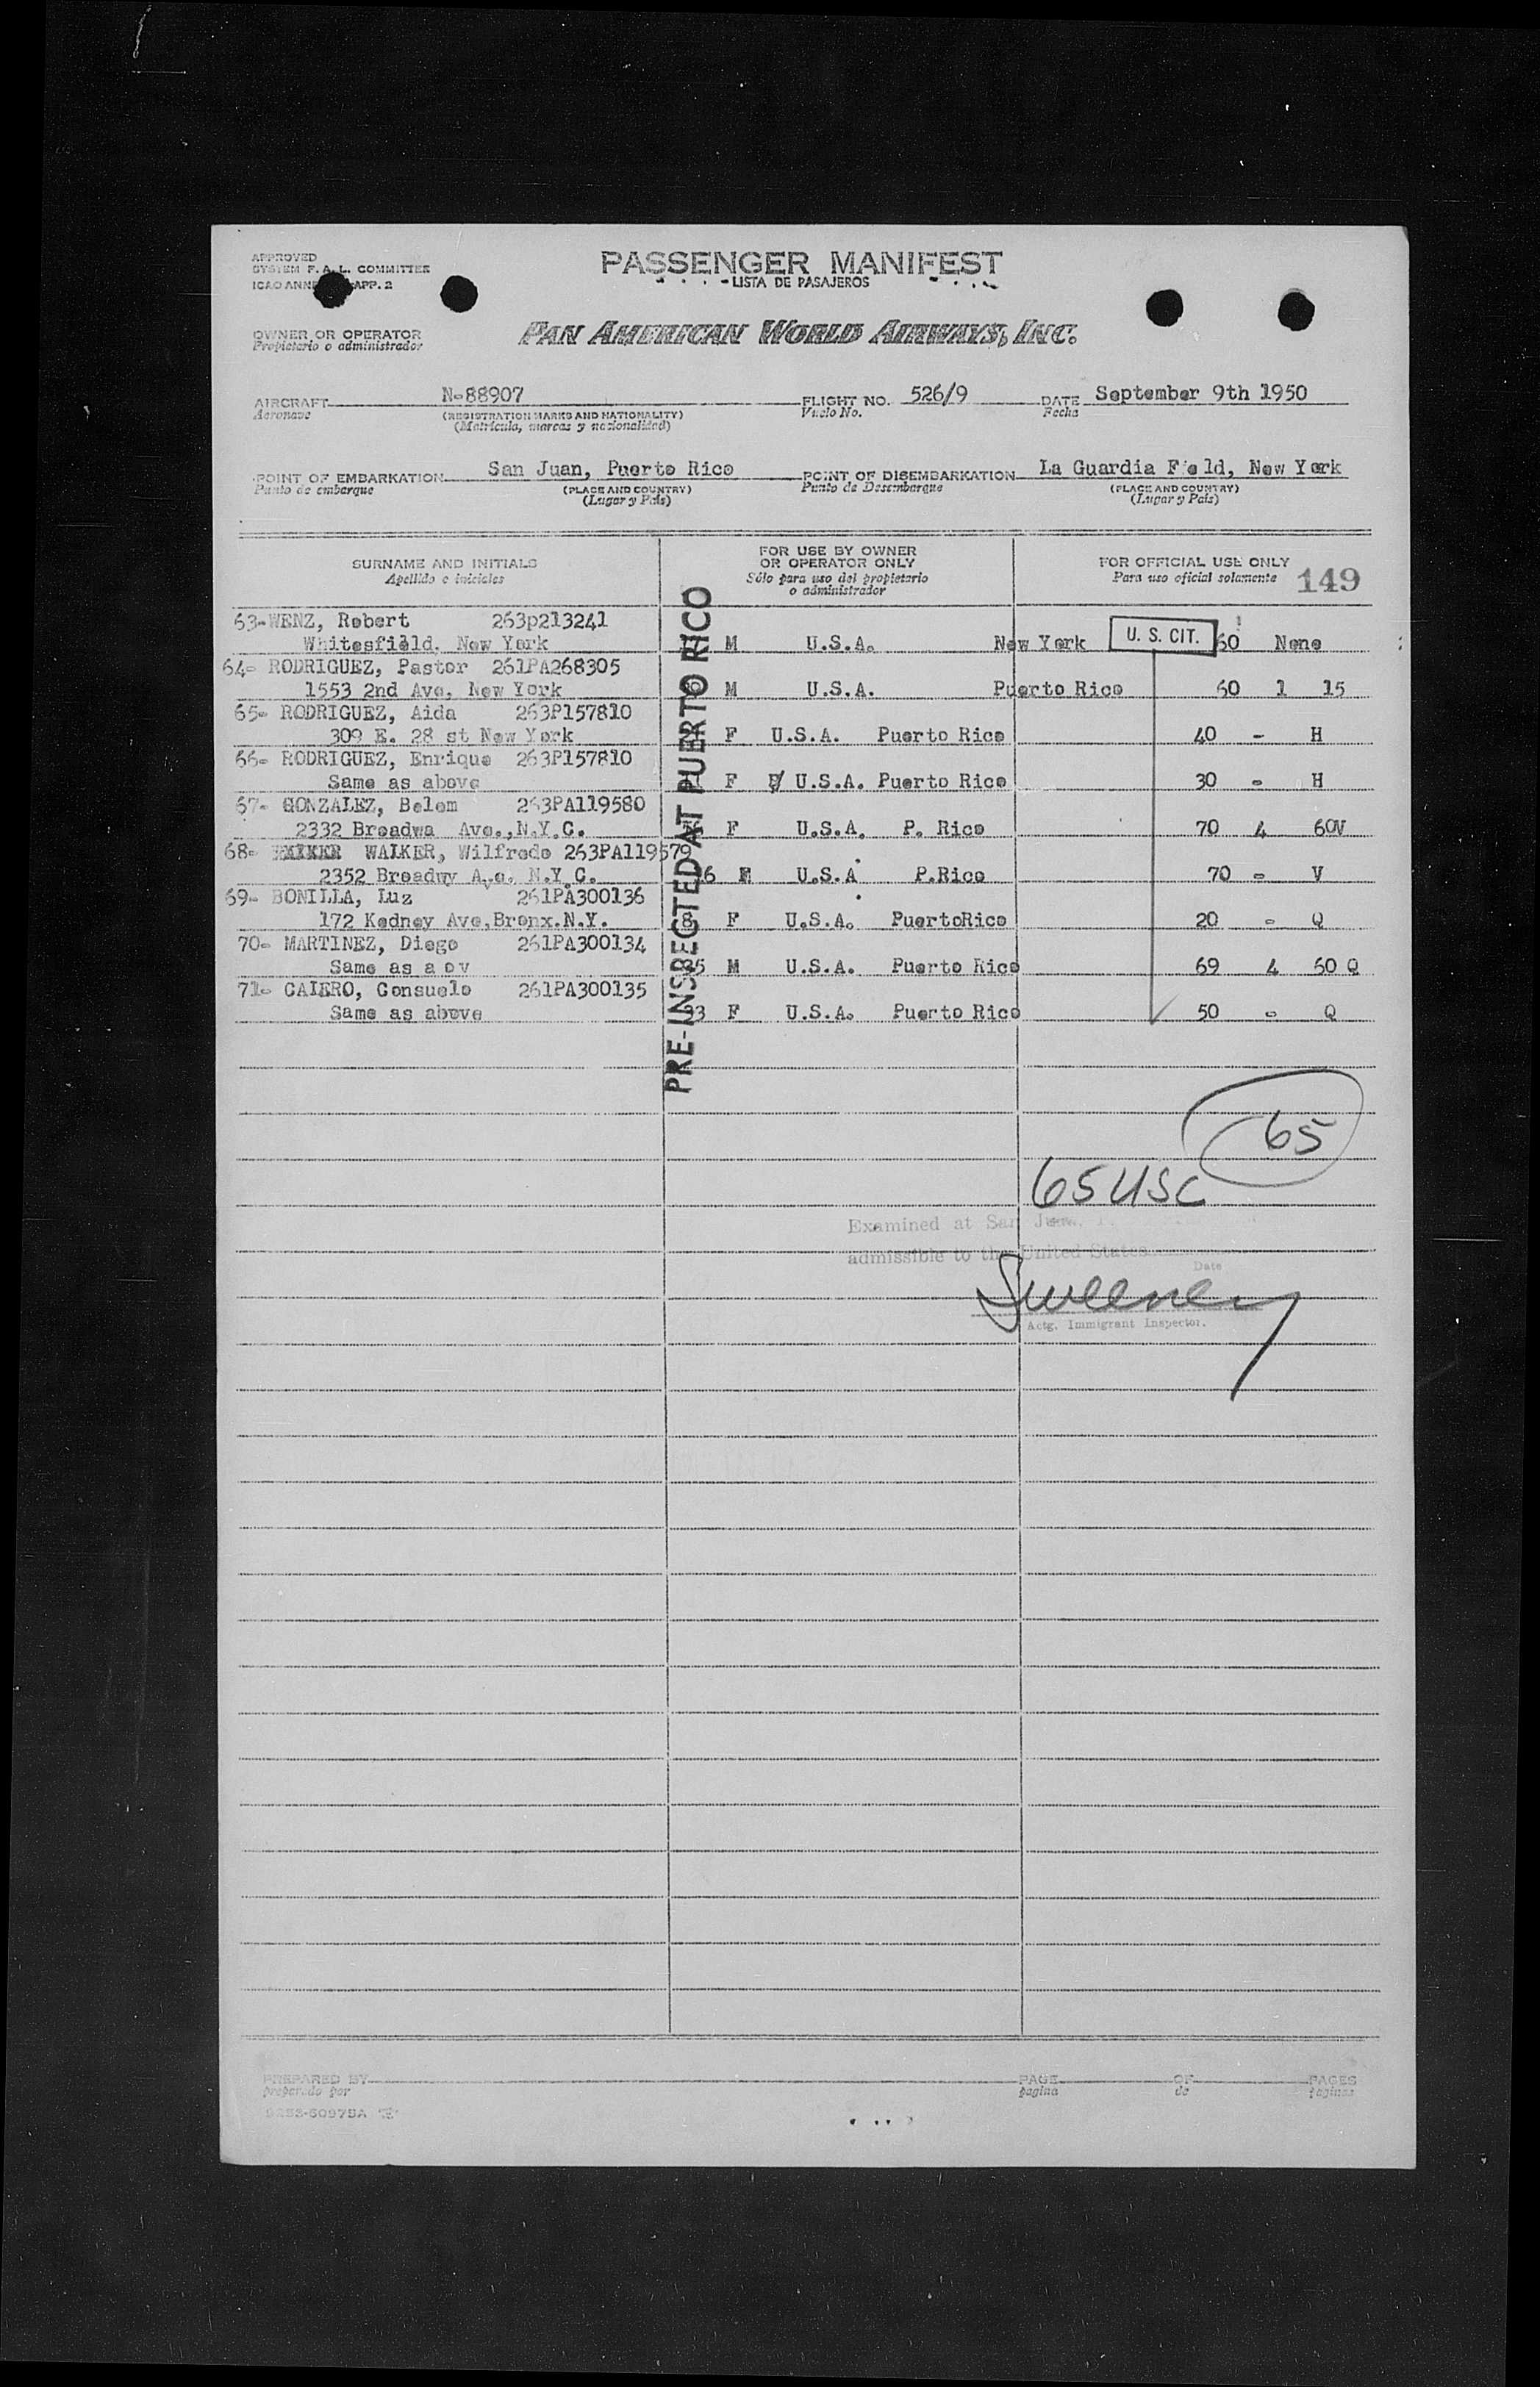 APPROVED
SYSTEM F. A. L. COMMITTEE
ICAO APP. 2
PASSENGER MANIFEST
LISTA DE PASAJEROS
OWNER OR OPERATOR
Propietario o administrador
PAN AMERICAN WORLD AIRWAYS, INC.
AIRCRAFT N-88907 FLIGHT NO. 526/9 DATE September 9th 1950
Aeronave (REGISTRATION MARKS AND NATIONALITY) Vuelo No. Fecha
(Matrícula, marcas y nacionalidad)
POINT OF EMBARKATION San Juan, Puerto Rico POINT OF DISEMBARKATION La Guardia F eld, New York
Punto de embarque (PLACE AND COUNTRY) Punto de Desembarque (PLACE AND COUNTRY)
(Lugar y País) (Lugar y País)
SURNAME AND INITIALS FOR USE BY OWNER OR OPERATOR ONLY FOR OFFICIAL USE ONLY
Apellido e iniciales Sólo para uso del propietario o administrador Para uso oficial solamente 149
PRE-INSPECTED AT PUERTO RICO
U. S. CIT.
63-WENZ, Robert 263p213241
Whitesfield. New York M U.S.A. New York 60 None
64- RODRIGUEZ, Pastor 261PA268305
1553 2nd Ave, New York M U.S.A. Puerto Rico 60 1 15
65- RODRIGUEZ, Aida 263P157810
309 E. 28 st New York F U.S.A. Puerto Rico 40 - H
66- RODRIGUEZ, Enrique 263P157810
Same as above F U.S.A. Puerto Rico 30 - H
67- GONZALEZ, Belem 263PA119580
2332 Broadwa Ave.,N.Y.C. F U.S.A. P. Rico 70 4 60V
68- WALKER, Wilfredo 263PA119579
2352 Broadwy Ave. N.Y.C. 26 U.S.A P.Rico 70 - V
69- BONILLA, Luz 261PA300136
172 Kedney Ave,Bronx.N.Y. F U.S.A. PuertoRico 20 - Q
70- MARTINEZ, Diego 261PA300134
Same as a ov 35 M U.S.A. Puerto Rico 69 4 60 Q
71- CAIERO, Consuelo 261PA300135
Same as above 23 F U.S.A. Puerto Rico 50 - Q
65
65 USC
Examined at San Juan,
admissible to the United States
Date
Sweeney
Actg. Immigrant Inspector.
PREPARED BY PAGE OF PAGES
preparado por pagina de paginas